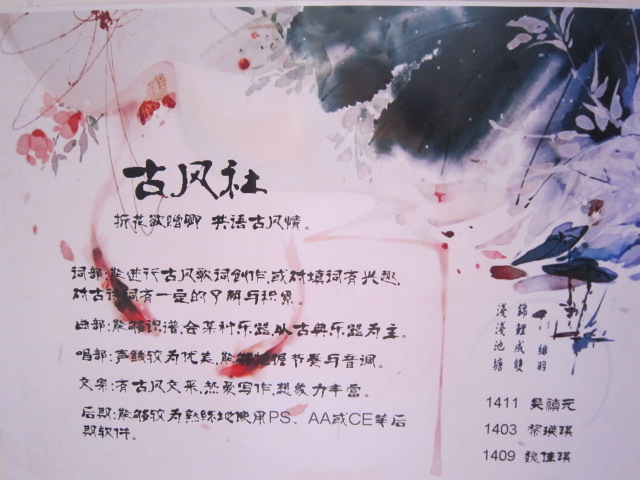 古风社
折花欲赠卿 共语古风情。
词部:能进行古风歌词创作,或对填词有兴趣,
对古诗词有一定的了解与积累。
曲部:能够识谱,会某种乐器,以古典乐器为主。
唱部:声线较为优美,能够掌握节奏与音调。
文案:有古风文采,热爱写作,想象力丰富。
后期:能够较为熟练地使用PS、AA或CE等后
期软件。
锦鲤成双
浅浅池塘
1411 吴祯元
1403 黎瑛琪
1409 魏佳琪